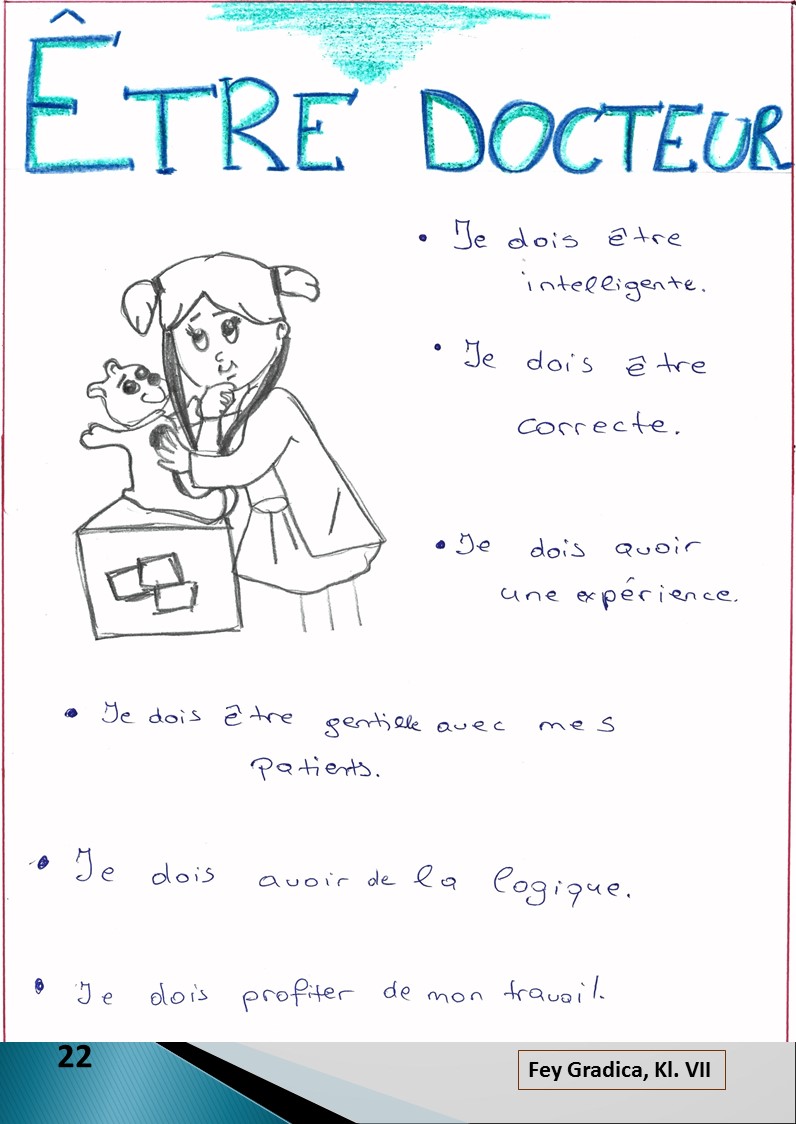 ÊTRE DOCTEUR
• Je dois être
intelligente.
• Je dois être
correcte.
• Je dois avoir
une expérience.
• Je dois être gentille avec mes
patients.
• Je dois avoir de la logique.
• Je dois profiter de mon travail.
22
Fey Gradica, Kl. VII